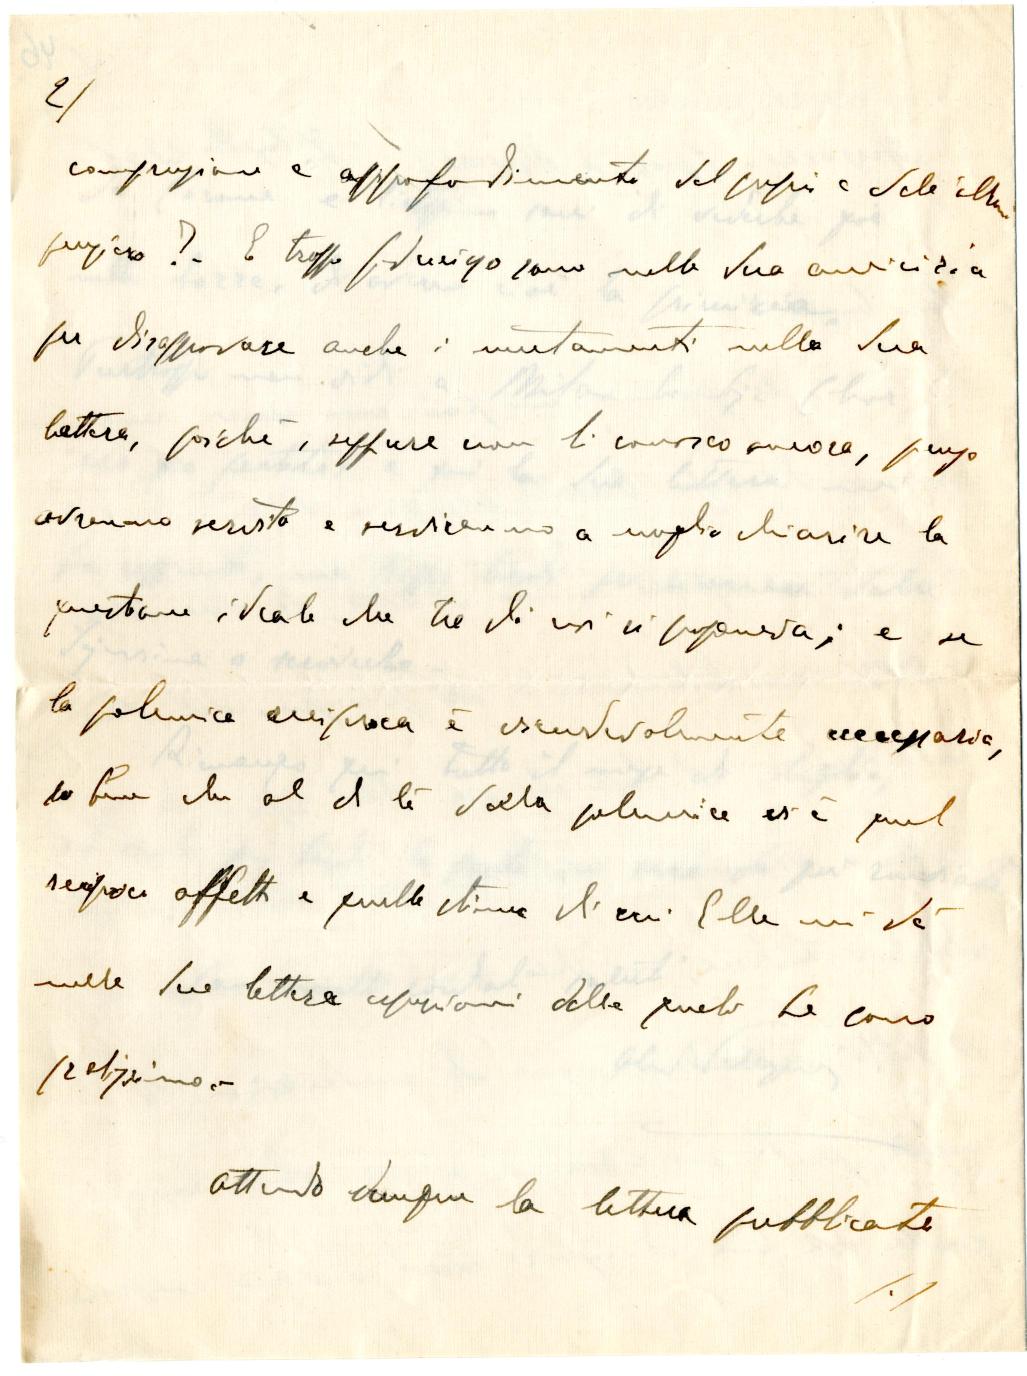 2/
comprensione e approfondimento del proprio e dell'altrui
pensiero?- E troppo fiducioso sono nella Sua amicizia
per disapprovare anche i mutamenti nella Sua
lettera, poiché, seppure non li conosco ancora, penso
avranno servito e serviranno a meglio chiarire la
questione ideale che tra di noi si proponeva; e se
la polemica reciproca è necessaria,
so bene che al di là della polemica vi è quel
reciproco affetto e quella stima di cui Ella mi dà
nella Sua lettera espressioni delle quali Le sono
gratissimo.-
Attendo dunque la lettera pubblicata
/./